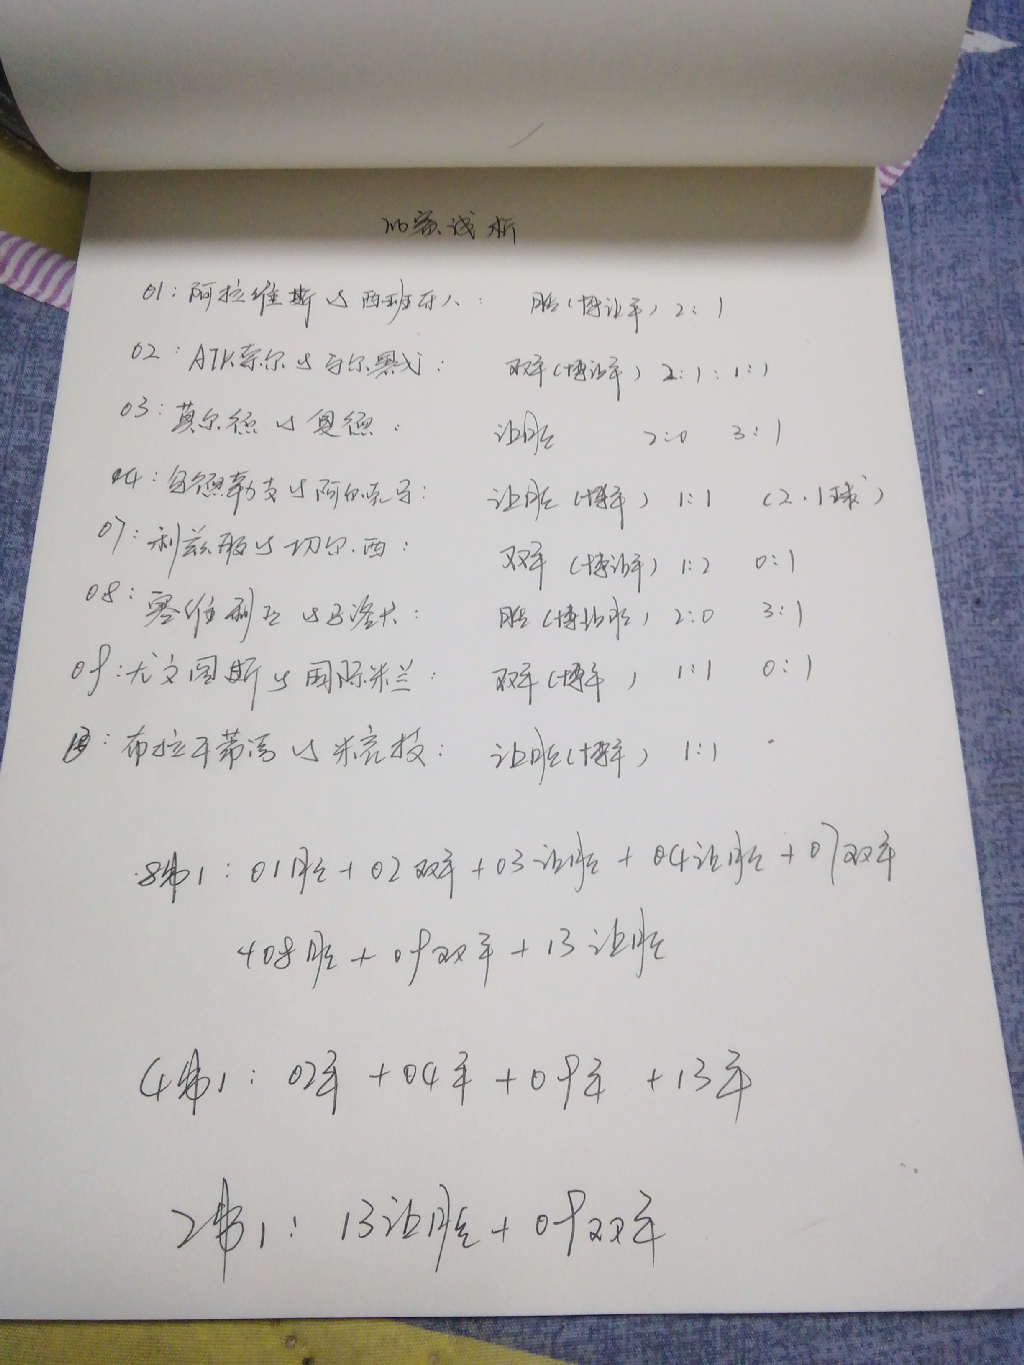 浅析
01:阿拉维斯 VS 西班牙人: 胜(博让平) 2:1
02:ATK 尔 VS 马尔默: 双平(博让平) 2:1: 1:1
03:莫尔德 VS 奥德: 让胜 2:0 3:1
04: VS 阿 : 让胜(博平) 1:1 (2.1球)
07:利兹联 VS 切尔西: 双平(博让平) 1:2 0:1
08:塞维利亚 VS : 胜(博让胜) 2:0 3:1
09:尤文图斯 VS 国际米兰: 双平(博平) 1:1 0:1
13:布拉干蒂诺 VS 米竞技: 让胜(博平) 1:1
8串1:01胜+02双平+03让胜+04让胜+07双平
+08胜+09双平+13让胜
4串1:02平+04平+09平+13平
2串1:13让胜+09双平